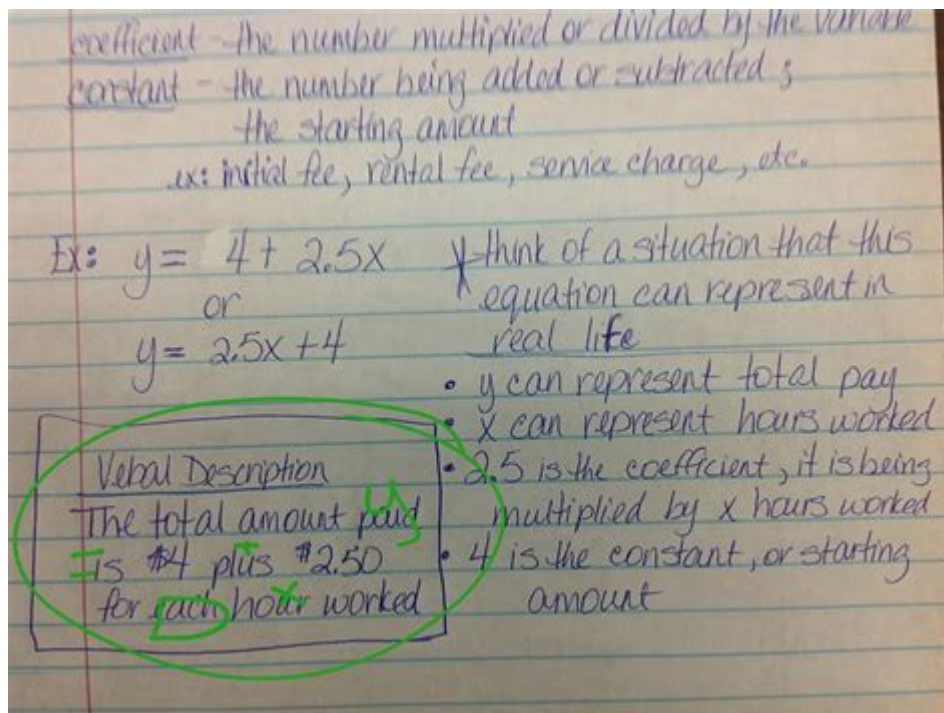 coefficient - the number multiplied or divided by the variable
constant - the number being added or subtracted;
the starting amount
ex: initial fee, rental fee, service charge, etc.
Ex: y = 4 + 2.5x
or
y = 2.5x + 4
* think of a situation that this
equation can represent in
real life
• y can represent total pay
• x can represent hours worked
• 2.5 is the coefficient, it is being
multiplied by x hours worked
• 4 is the constant, or starting
amount
Verbal Description
The total amount paid
is $4 plus $2.50
for each hour worked
y
=
+
x